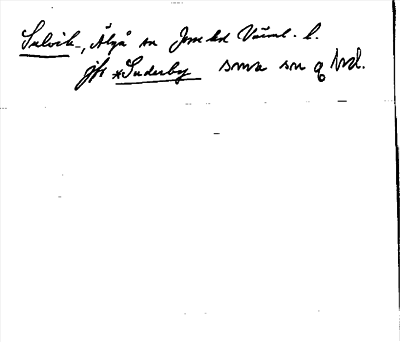 Sulvik-, Älgå sn Jösse hd Värml. l.
jfr *Suderby sma sn o hd.